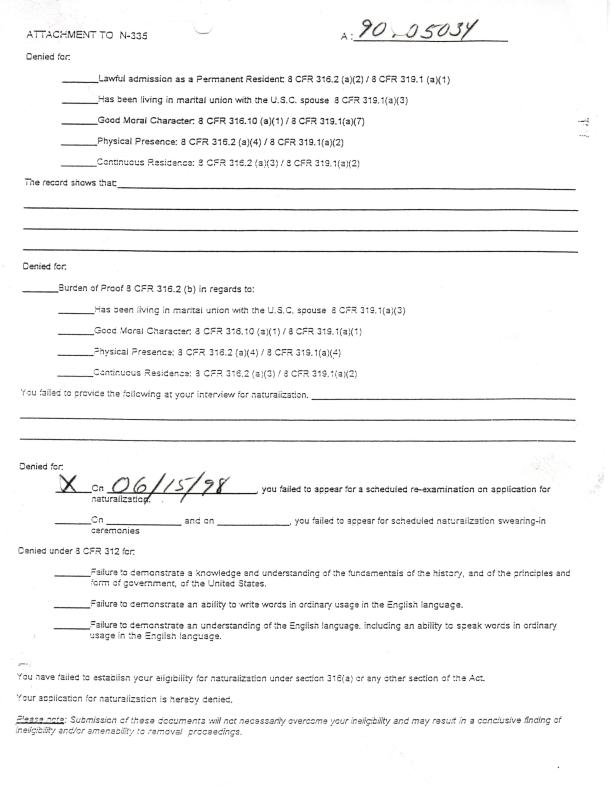 ATTACHMENT TO N-335 A: 90.05034
Denied for:
Lawful admission as a Permanent Resident: 8 CFR 316.2 (a)(2) / 8 CFR 319.1 (a)(1)
Has been living in marital union with the U.S.C. spouse 8 CFR 319.1(a)(3)
Good Moral Character: 8 CFR 316.10 (a)(1) / 8 CFR 319.1(a)(7)
Physical Presence: 8 CFR 316.2 (a)(4) / 8 CFR 319.1(a)(2)
Continuous Residence: 8 CFR 316.2 (a)(3) / 8 CFR 319.1(a)(2)
The record shows that:
Denied for:
Burden of Proof 8 CFR 316.2 (b) in regards to:
Has been living in marital union with the U.S.C. spouse 8 CFR 319.1(a)(3)
Good Moral Character: 8 CFR 316.10 (a)(1) / 8 CFR 319.1(a)(1)
Physical Presence: 8 CFR 316.2 (a)(4) / 8 CFR 319.1(a)(4)
Continuous Residence: 8 CFR 316.2 (a)(3) / 8 CFR 319.1(a)(2)
You failed to provide the following at your interview for naturalization.
Denied for:
X On 06/15/98, you failed to appear for a scheduled re-examination on application for
naturalization.
On and on , you failed to appear for scheduled naturalization swearing-in
ceremonies
Denied under 8 CFR 312 for:
Failure to demonstrate a knowledge and understanding of the fundamentals of the history, and of the principles and
form of government, of the United States.
Failure to demonstrate an ability to write words in ordinary usage in the English language.
Failure to demonstrate an understanding of the English language, including an ability to speak words in ordinary
usage in the English language.
You have failed to establish your eligibility for naturalization under section 316(a) or any other section of the Act.
Your application for naturalization is hereby denied.
Please note: Submission of these documents will not necessarily overcome your ineligibility and may result in a conclusive finding of
ineligibility and/or amenability to removal proceedings.